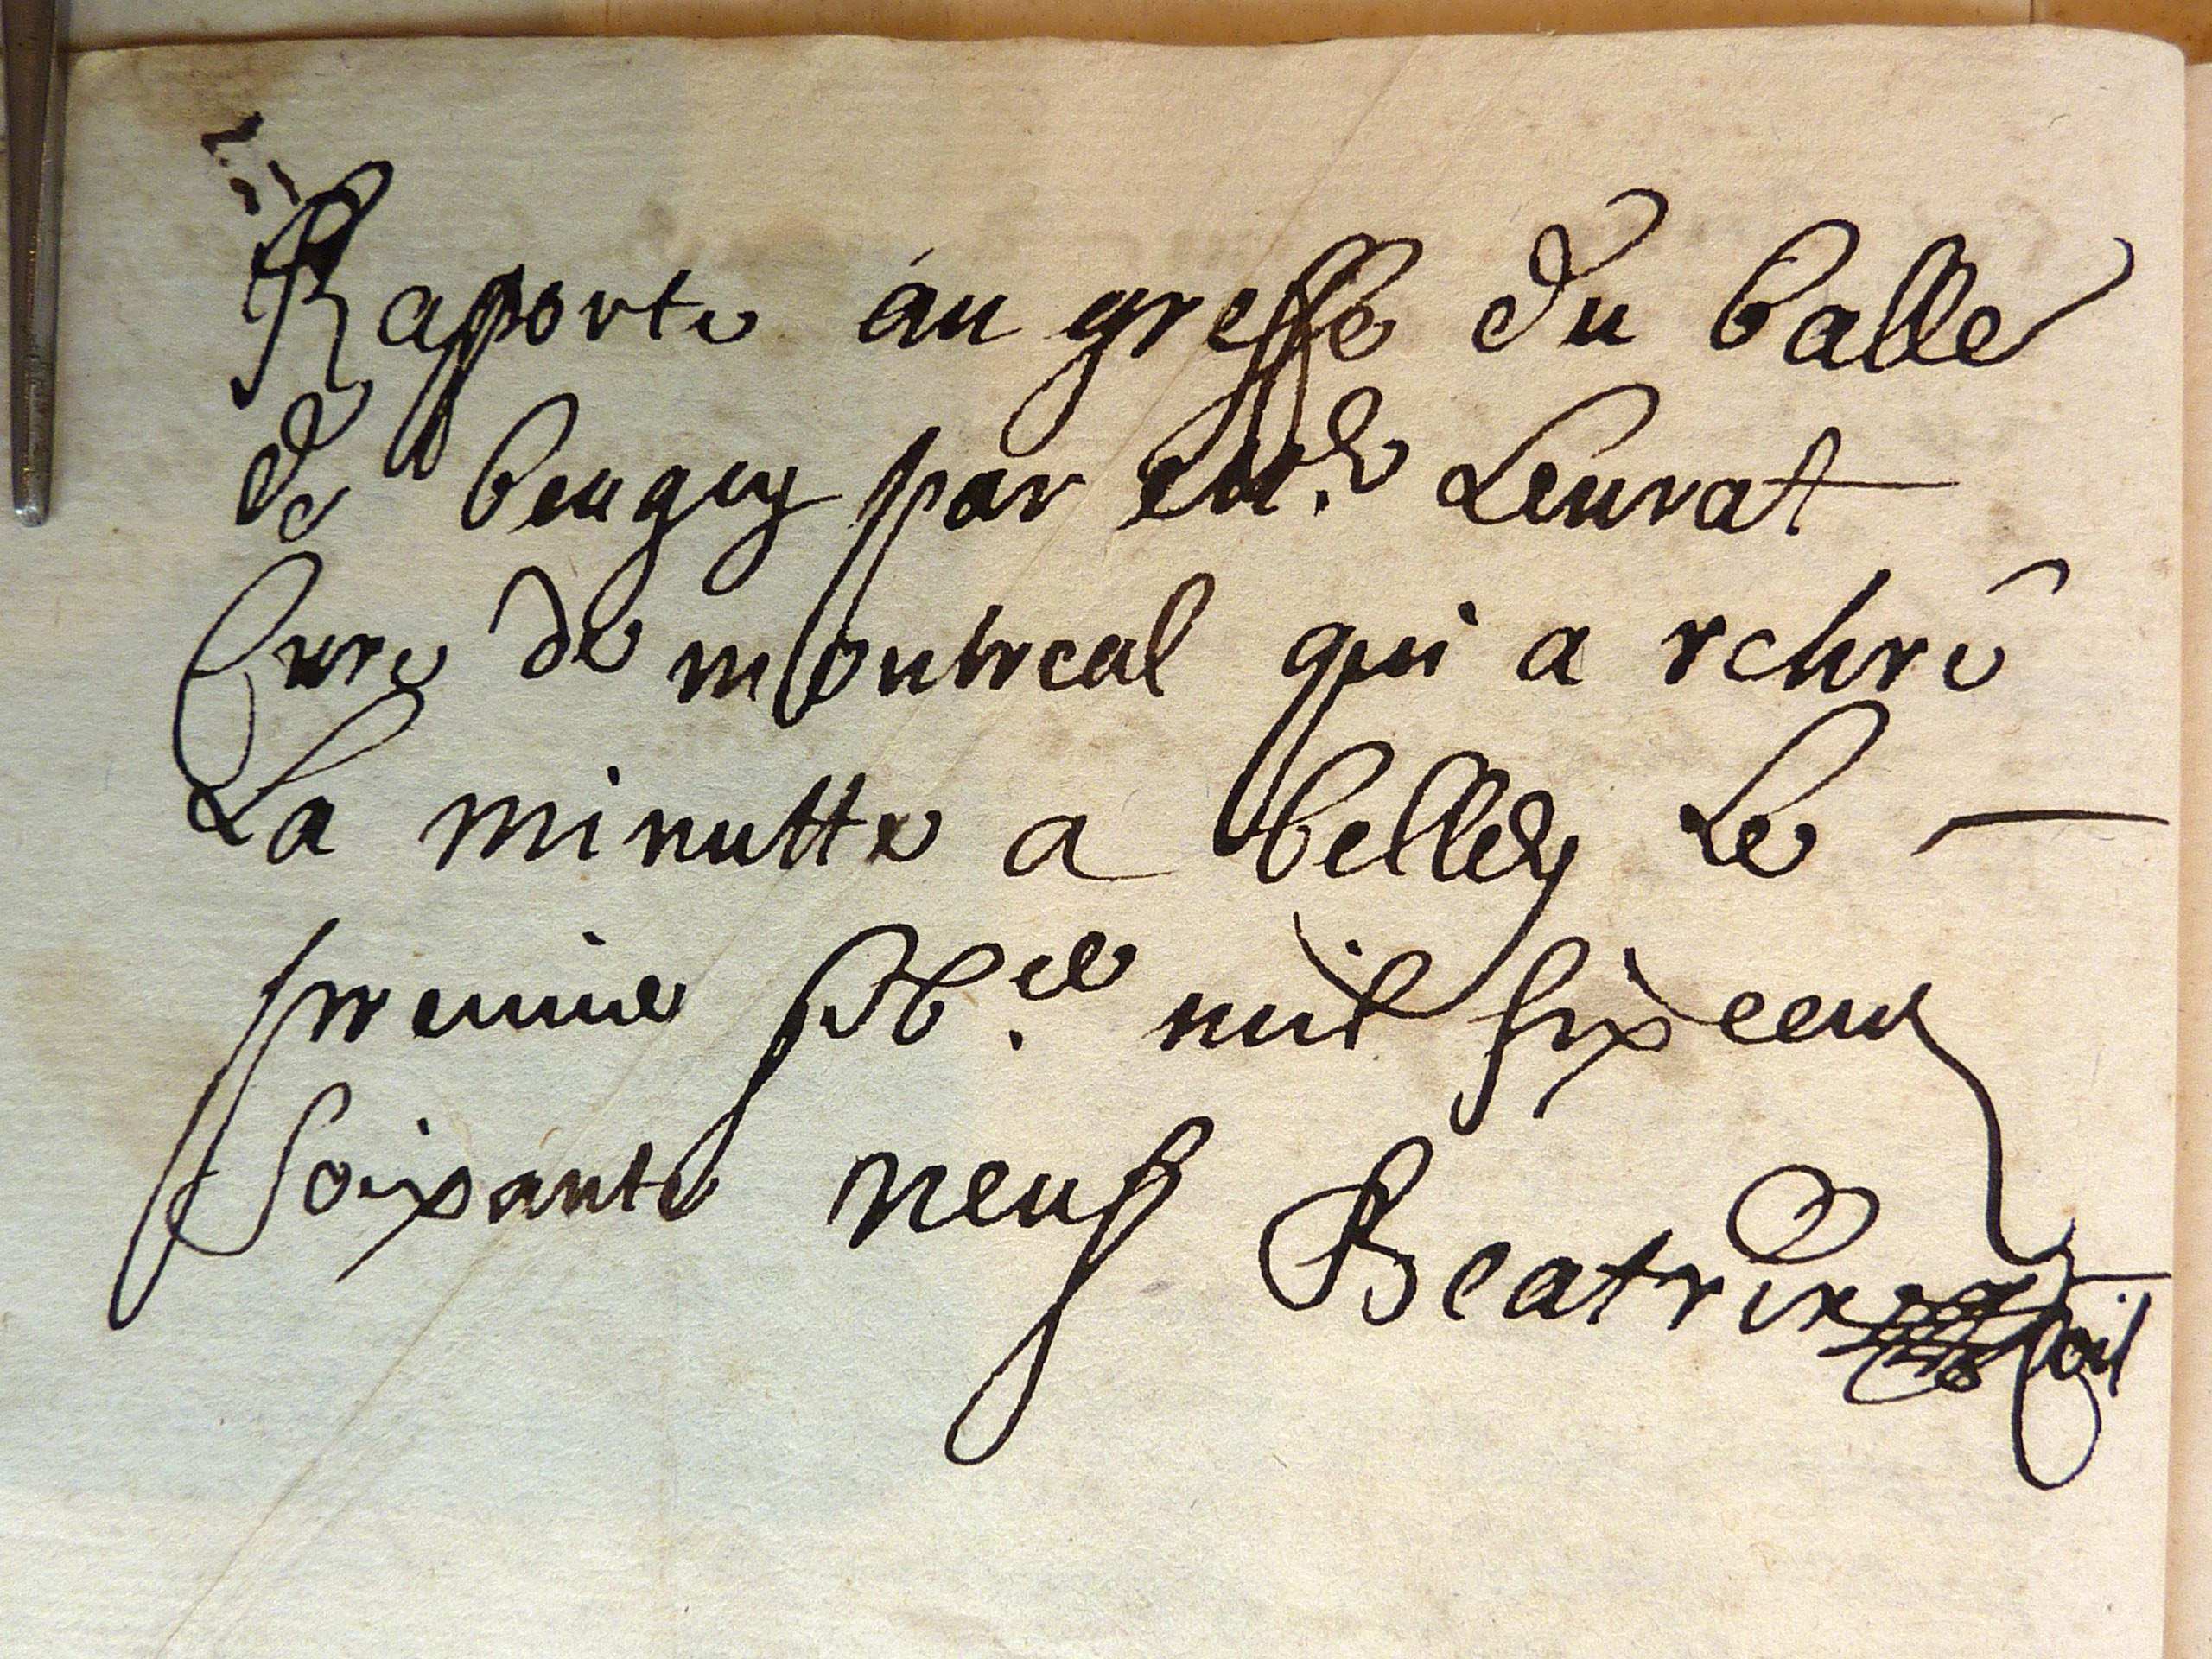 Raporte au greffe du balle
de beugey par Mre Leurat
Cure de montreal qui a retire
La minutte a belley Le
premier xbre mil six cent
soixante neuf Beatrix